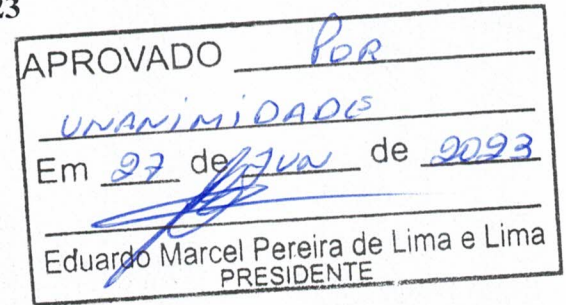 23
APROVADO POR
UNANIMIDADE
Em 27 de JUN de 2023
Eduardo Marcel Pereira de Lima e Lima
PRESIDENTE